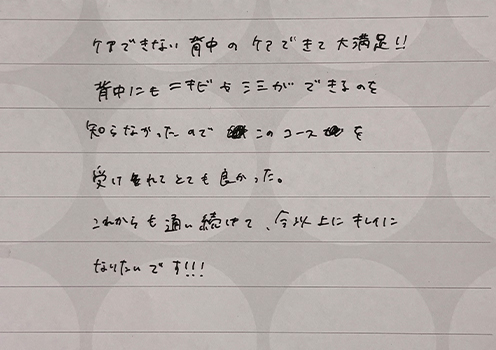 ケアできない背中のケアできて大満足!!
背中にもニキビやシミができるのを
知らなかったので このコース を
受けれてとても良かった。
これからも通い続けて、今以上にキレイに
なりたいです!!!